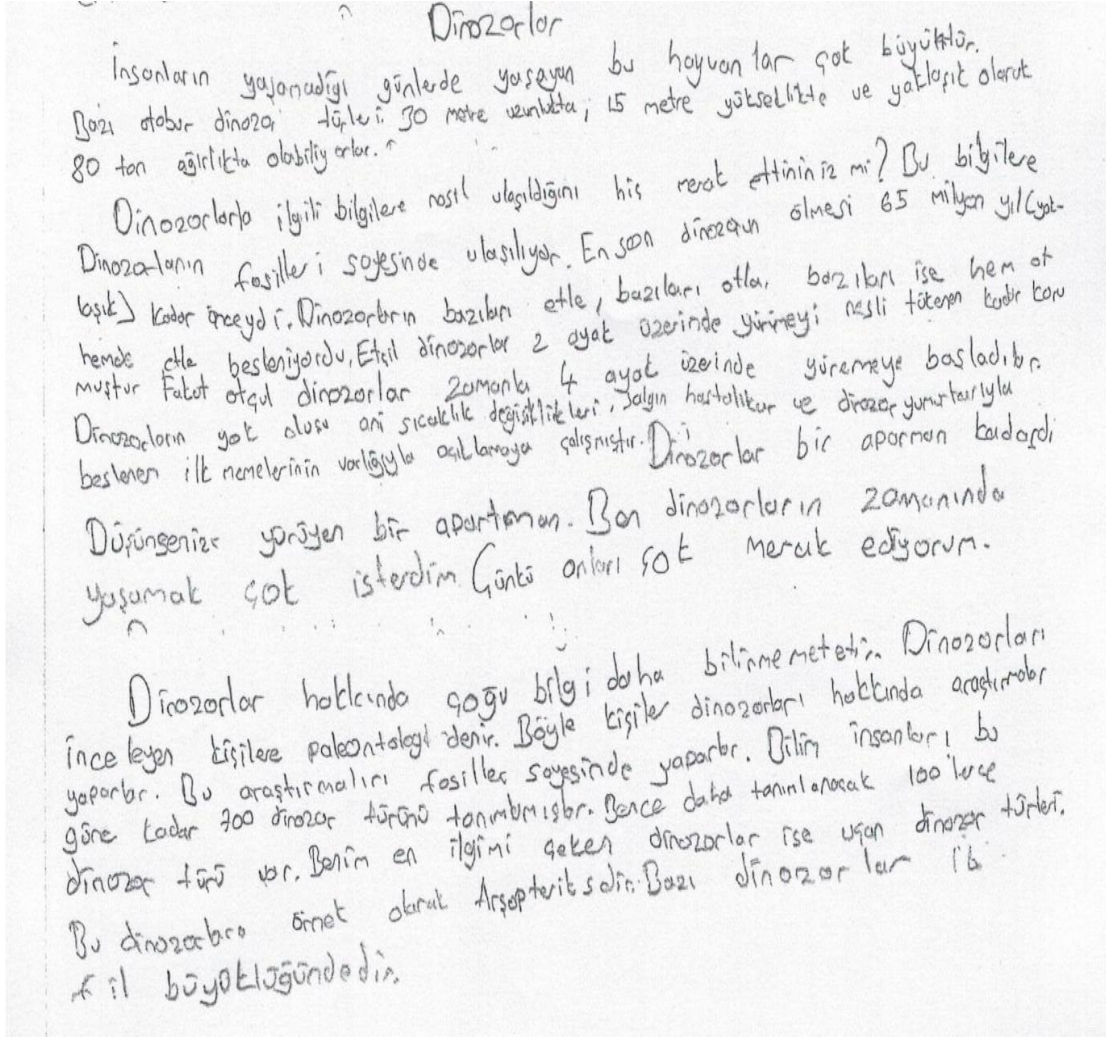 Dinozorlar
İnsanların yaşamadığı günlerde yaşayan bu hayvanlar çok büyüktür.
Bazı otobur dinozor türleri 30 metre uzunlukta, 15 metre yükseklikte ve yaklaşık olarak
80 ton ağırlıkta olabiliyorlar.
Dinozorlarla ilgili bilgilere nasıl ulaşıldığını hiç merak ettininiz mi? Bu bilgilere
Dinozorlanın fosilleri sayesinde ulaşılıyor. En son dinozorun ölmesi 65 milyon yıl (yak-
laşık) kadar önceydi. Dinozorların bazıları etle, bazıları otla, bazıları ise hem ot
hemde etle besleniyordu. Etçil dinozorlar 2 ayak üzerinde yürümeyi nesli tükenen kadar koru
muştur Fakat otçul dinozorlar zamanla 4 ayak üzerinde yüremeye başladılar.
Dinozorların yok oluşu ani sıcaklık değişiklikleri, salgın hastalıklar ve dinozor yumurtalarıyla
beslenen ilk memelerinin varlığıyla açıklamaya çalışmıştır. Dinozorlar bir aparman kadardı
Düşünsenize yürüyen bir apartman. Ben dinozorların zamanında
yaşamak çok isterdim. Çünkü onları çok merak ediyorum.
Dinozorlar hakkında çoğu bilgi daha bilinmemetedir. Dinozorları
inceleyen kişilere paleontologil denir. Böyle kişiler dinozorları hakkında araştırmalar
yaparlar. Bu araştırmaları fosiller sayesinde yaparlar. Bilim insanları bu
güne kadar 700 dinozor türünü tanımlamışlar. Bence daha tanımlanacak 100'lerce
dinozor türü var. Benim en ilgimi çeken dinozorlar ise uçan dinozor türleri.
Bu dinozorlara örnet olarak Arşopteriksdir. Bazı dinozorlar 16
fil büyoklüğündedir.